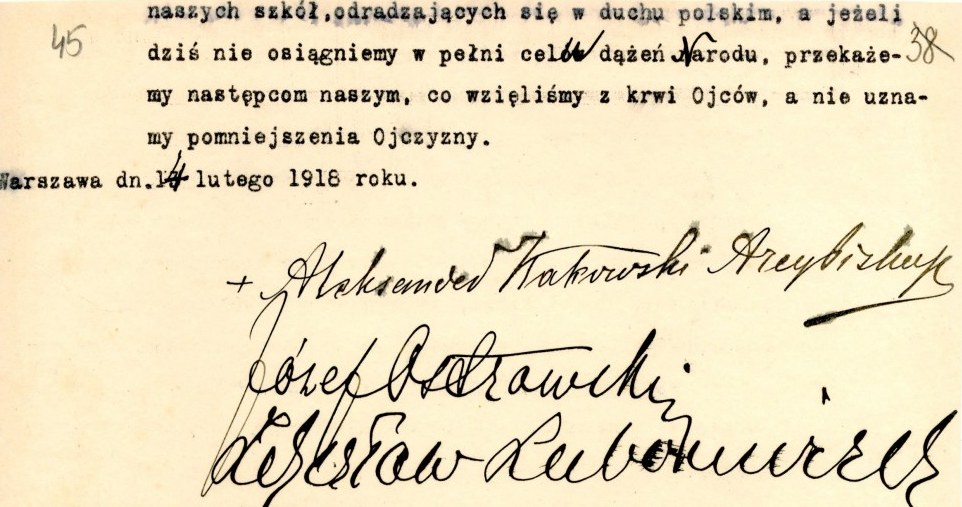 naszych szkół,odradzających się w duchu polskim, a jeżeli
45
dziś nie osiągniemy w pełni celu dążeń Narodu, przekaże-
38
my następcom naszym, co wzięliśmy z krwi Ojców, a nie uzna-
my pomniejszenia Ojczyzny.
Warszawa dn.14 lutego 1918 roku.
+ Aleksander Kakowski Arcybiskup
Józef Ostrowski
Zdzisław Lubomirski